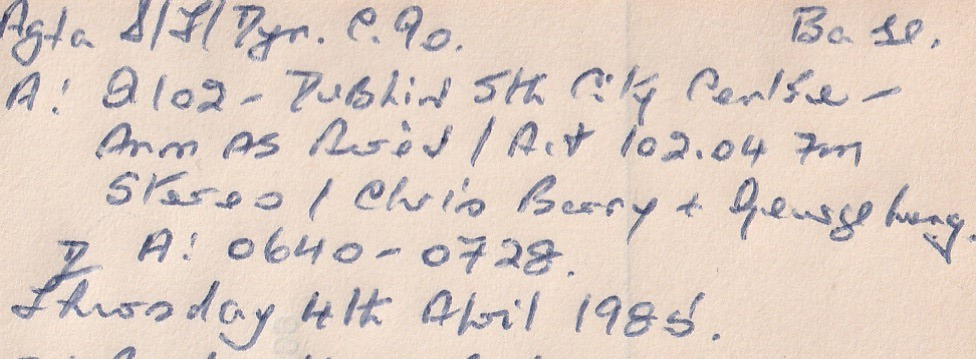 Agfa S/F/Dyn. C.90. Base.
A: Q102 - Dublin Sth City Centre -
Ann AS Rec'd / A.t 102.04 Fm
Stereo / Chris Barry + George Long.
D A: 0640 - 0728.
Thursday 4th April 1985.